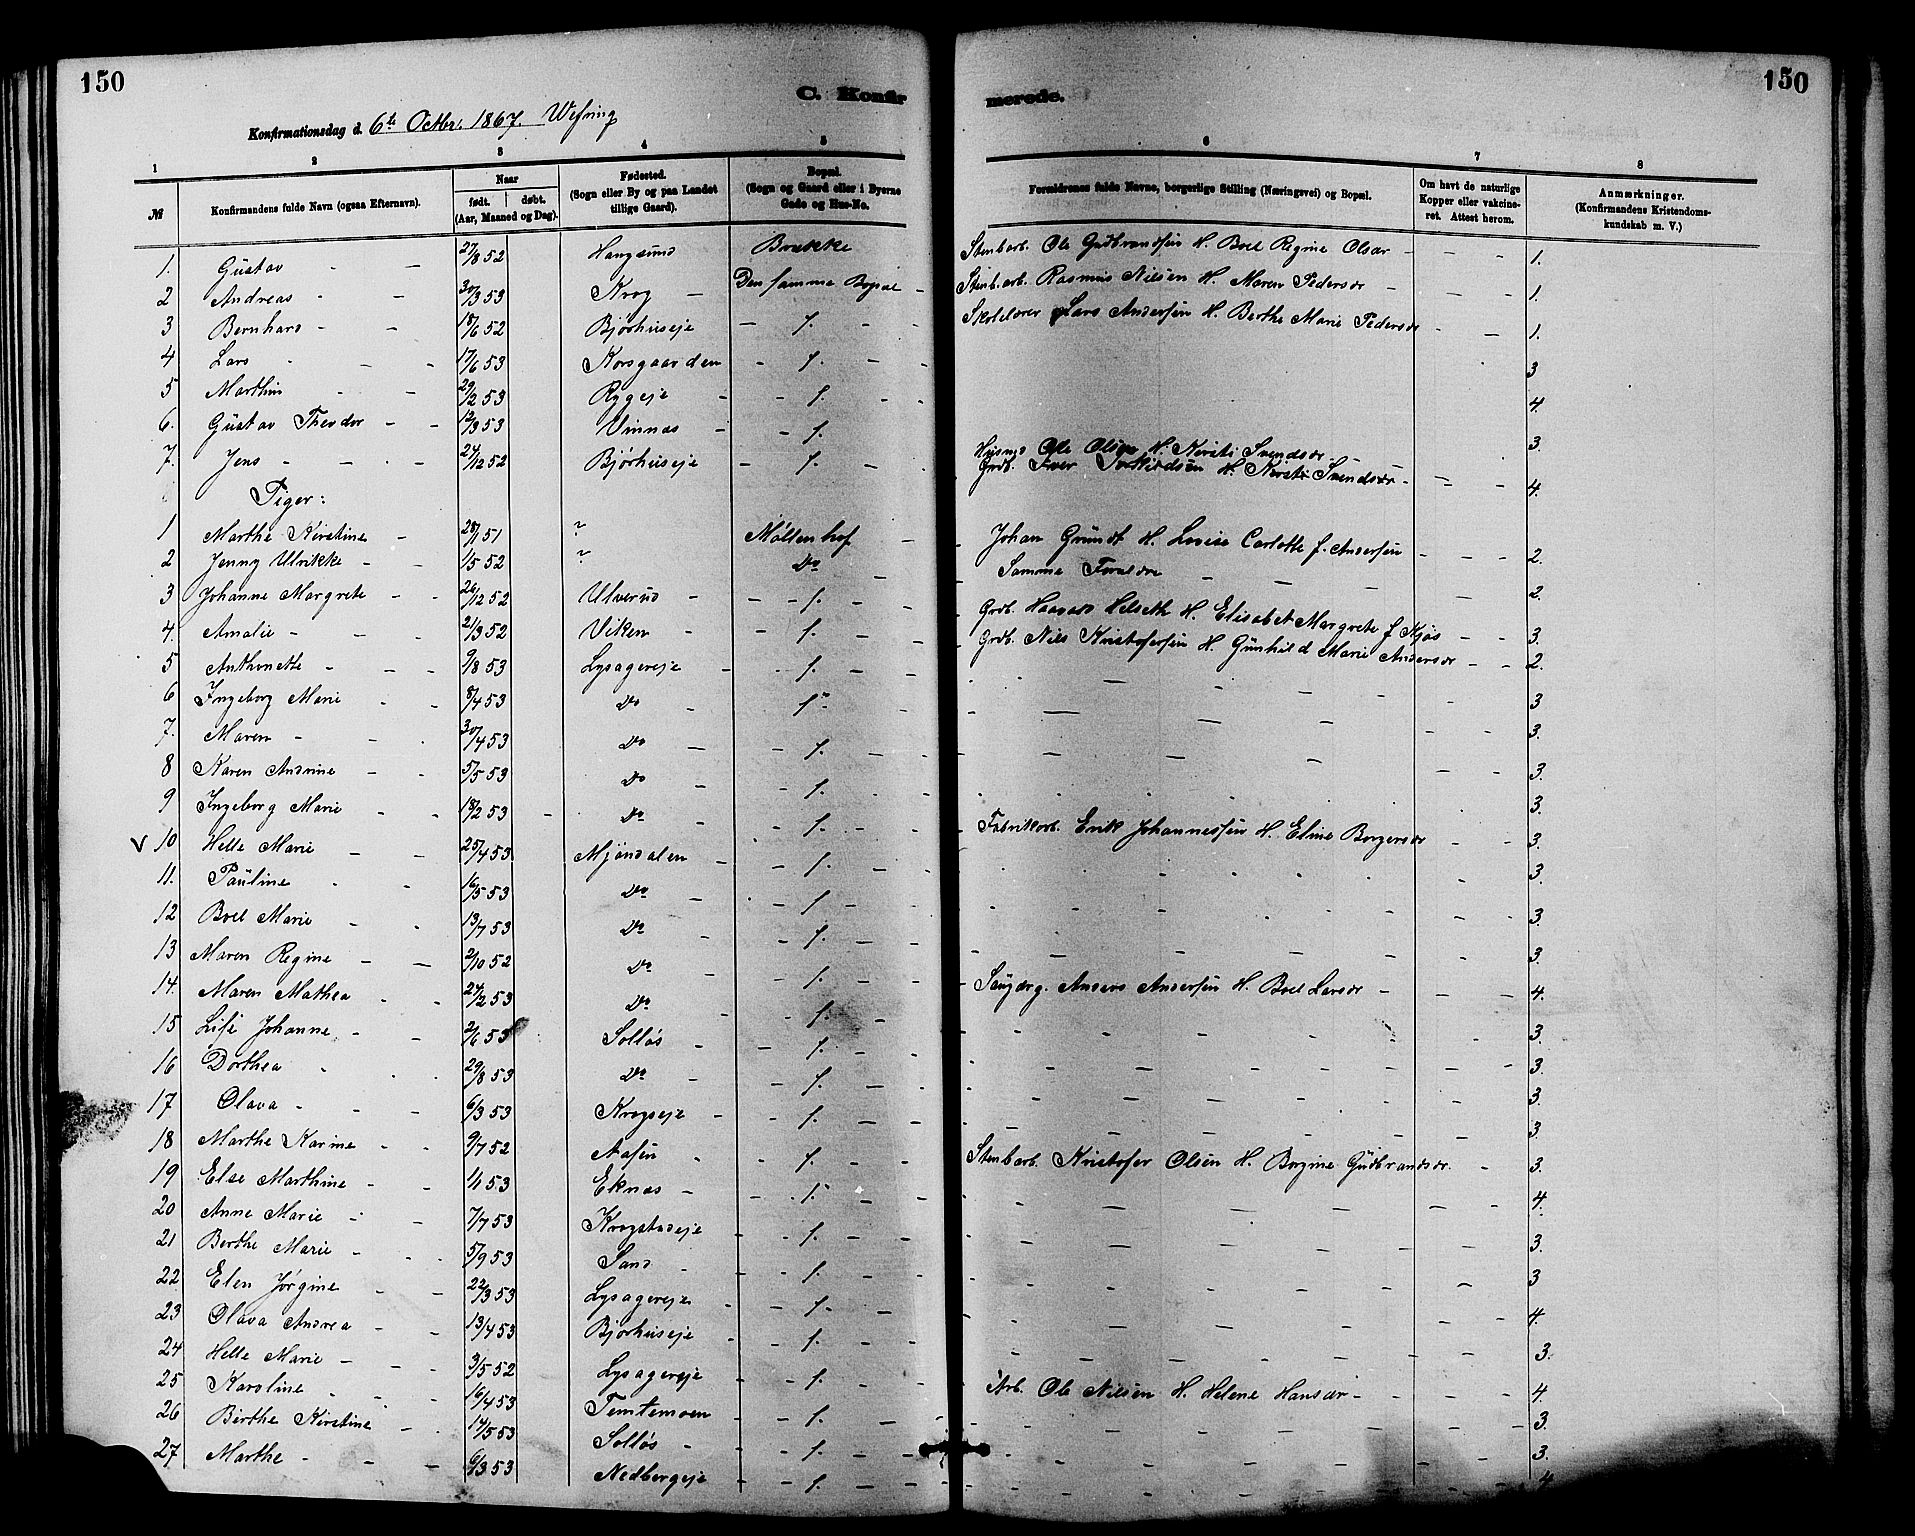 150
150
C. Konfirmerede.
Konfirmationsdag d. 6te Octbr. 1867. Wefring
1 2 3 4 5 6 7 8
№
Konfirmandens fulde Navn (ogsaa Efternavn).
Naar
født. døbt.
(Aar, Maaned og Dag).
Fødested.
(Sogn eller By og paa Landet
tillige Gaard).
Bopæl.
(Sogn og Gaard eller i Byerne
Gade og Hus-No.
Forældrenes fulde Navne, borgerlige Stilling (Næringsvei) og Bopæl.
Om havt de naturlige
Kopper eller vakcine-
ret. Attest herom.
Anmærkninger.
(Konfirmandens Kristendoms-
kundskab m. V.)
1. Gustav - - 27/8 52 Haugsund Brække Stenbarb. Ole Gudbrandsen H. Boel Regine Olsdr - - - 1.
2 Andreas - - 30/3 53 Krog - Den samme Bopæl - Stenbarb. Rasmus Nilsen H. Maren Pedersdr - - - 1.
3 Bernhard - - 18/6 52 Bjørhuseje - 1. - - Skolelærer Lars Andersen H. Berthe Marie Pedersdr - - 1.
4 Lars - - - 17/6 53 Korsgaarden - 1. - - 3
5 Marthin - - 29/2 53 Rygeje - - 1. - - 4.
6. Gustav Theodor - - 12/3 53 Vinnæs - - 1. 3.
7. Jens - - - 24/12 52 Bjørhuseje - 1. - Husmd Ole Olsen H. Kirsti Svendsdr - -
Grdb. Iver H. Kirsti Svendsdr - - - 4.
Piger:
1 Marthe Kirstine - 28/1 51 ? Møllenhof - Johan Gründt H. Lovise Carlotte f. Andersen - - - 2.
2 Jenny Ulrikke - - 1/5 52 ? Do - Samme Forældre - - 2.
3 Johanne Margrete - - 26/12 52 Ulverud - - 1. - - Grdb. Haavard Helseth H. Elisabet Margrete f Kjøs - - 3.
4. Amalie - - - 21/3 52 Viken - - 1. - - Grdb. Nils Kristofersen H. Gunhild Marie Andersdr - - 2.
5 Anthonette - - - 9/8 53 Lysagereje - - 1. - - 3
6 Ingeborg Marie - - 8/4 53 Do - 1. 3.
7. Maren - - - 30/4 53 Do - - 1. - - 3.
8 Karen Andrine - - 5/5 53 Do - - 1. - - 3.
9 Ingeborg Marie - - 18/2 53 - Do - - 1. - - Fabrikarb. Erik Johannessen H. Eline Borgersdr - - 3.
V 10 Helle Marie - - 25/4 53 Mjøndalen - - 1. - - 3.
11. Pauline - - 16/5 53 Do - - 1. - - 3.
12 Boel Marie - - 13/7 53 Do - - 1. - - 3.
13 Maren Regine - - 2/10 52 Do - - 1. - - Saugarg. Anders Andersen H. Boel Larsdr - - - 4.
14. Maren Mathea - - 24/2 53 Do - - 1. - 3.
15 Lise Johanne - - 2/6 53 Solløs - - 1. - - 3.
16 Dorthea - - - 29/8 53 Do - - 1. - - 3.
17 Olava - - - 6/3 53 Krogseje - - 1. - - 3.
18 Marthe Karine - - 9/7 52 Aasen - - 1. - - Stenbarb. Kristofer Olsen H. Borgine Gudbrandsdr. - 3.
19 Else Marthine - - 1/1 53 Eknæs - - 1. - - 4.
20 Anne Marie - - 7/7 53 Krogstadeje - 1. - - 3.
21 Berthe Marie - - - 5/9 53 Sand - - 1. - - 3
22 Elen Jørgine - - 22/3 53 Lysagereje - - 1. - 4.
23 Olava Andrea - - 13/4 53 Bjørhuseje - - 1. - - 3.
24 Helle Marie - - - 3/5 52 Lysagereje - 1. - - Arb. Ole Nilsen H. Helene Hansdr - - - - 4
25 Karoline - - 16/4 53 Temtemoen - - 1. - - 3.
26 Birthe Kirstine - - 14/5 53 Solløs - - 1. - - 3.
27 Marthe - - - 6/3 53 Nedbergeje - - 1. - - 4